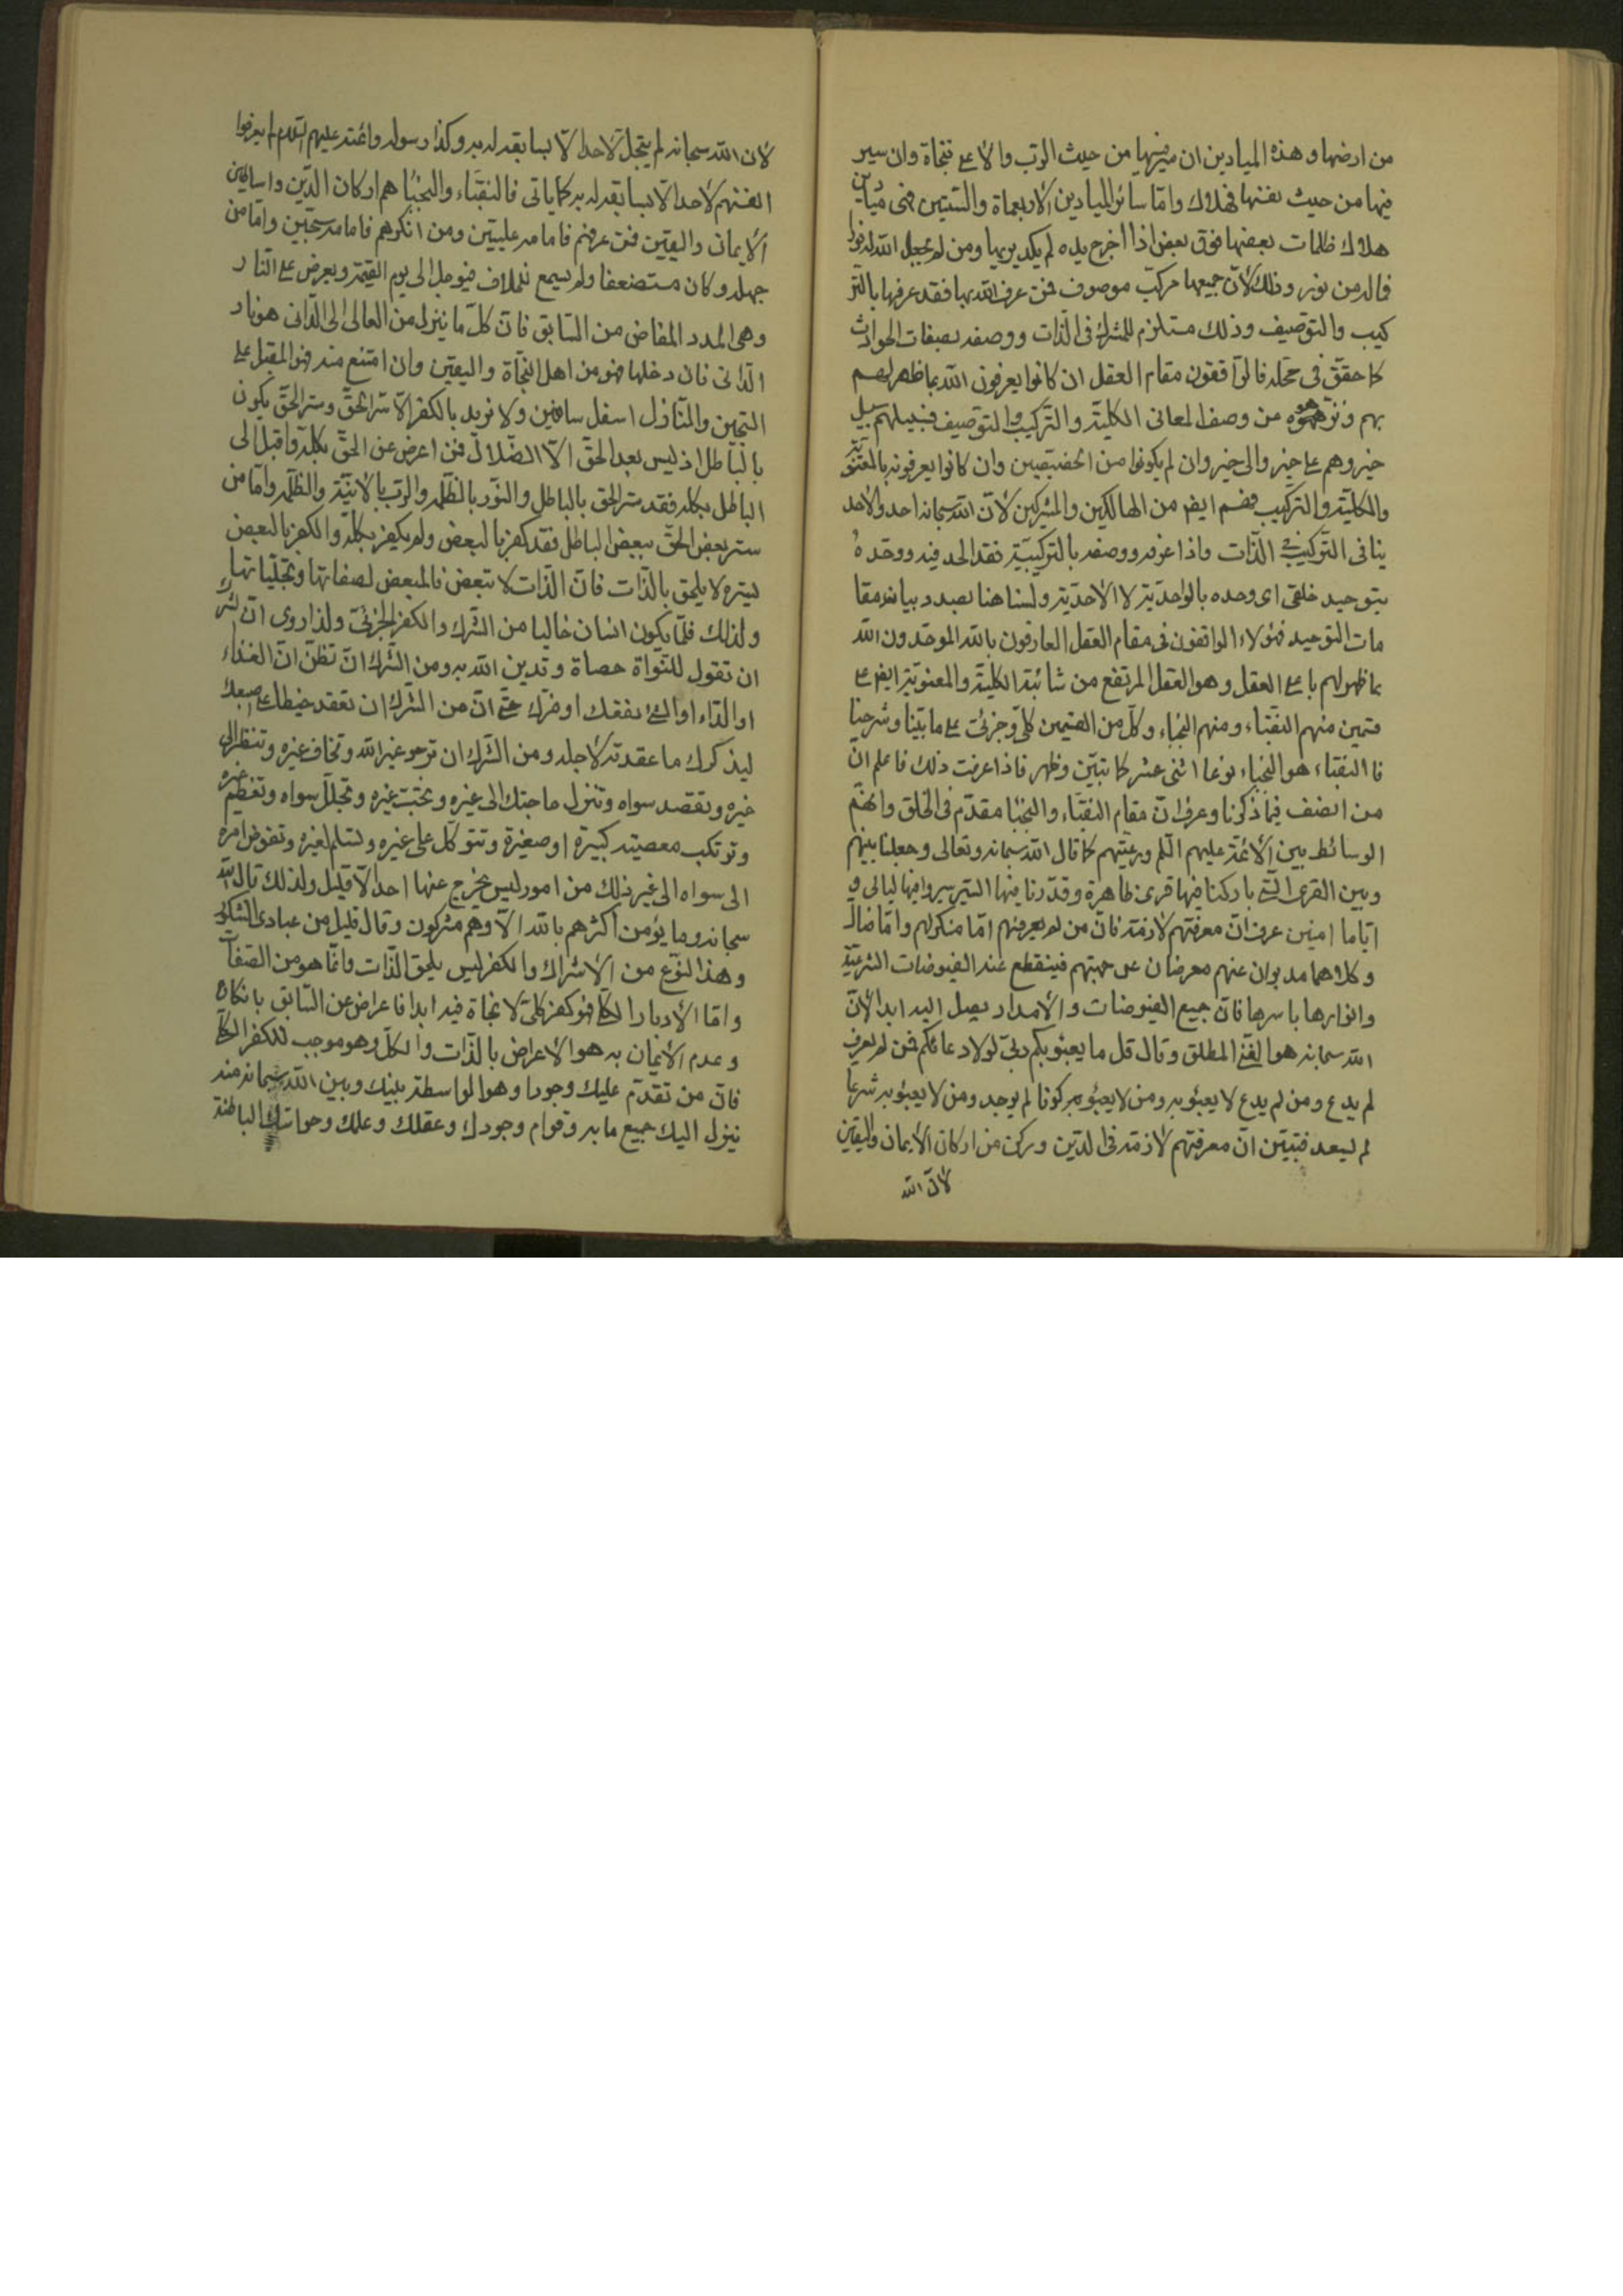 من ارضها و هذه الميادين ان سير فيها من حيث الرب والاعلى فنجاة وان سير
فيها من حيث نفسها فهلاك واما سائر الميادين الاربعماة والستين فهى ميادين
هلاك ظلمات بعضها فوق بعض اذا اخرج يده لم يكد يريها ومن لم يجعل الله له نورا
فماله من نور وذلك لان جميعها مركب موصوف فمن عرف الله بها فقد عرفها بالتر
كيب والتوصيف وذلك مستلزم للشرك فى الذات ووصفه بصفات الحوادث
كما حقق فى محله فالواقفون مقام العقل ان كانوا يعرفون الله بما ظهر لهم
بهم ونزهوه من وصف المعانى الكلية والتركيب والتوصيف فسبيلهم سبيل
خير وهم على خير والى خير وان لم يكونوا من الحقيقيين وان كانوا يعرفونه بالمعنوية
والكلية والتركيب فهم ايضا من الهالكين والمشركين لان الله سبحانه احد والاحد
ينافى التركيب فى الذات واذا عرفه ووصفه بالتركيبية فقد الحد فيه ووحده
بتوحيد خلقى اى وحده بالواحدية لا الاحدية ولسنا هنا بصدد بيانه مقا
مات التوحيد فهؤلاء الواقفون فى مقام العقل العارفون بالله الموحدون الله
بما ظهر لهم باعلى العقل وهو العقل المرتفع من شائبة الكلية والمعنوية ايضا على
قسمين منهم النقباء ومنهم النجباء وكل من القسمين كلى وجزئى على ما بينا وشرحنا
فالنقباء هو النجباء نوعا اثنى عشر كما تبين وظهر فاذا عرفت ذلك فاعلم ان
من انصف فيما ذكرنا وعرف ان مقام النقباء والنجبا مقدم فى الخلق وانهم
الوسائط بين الائمة عليهم السلم ورعيتهم كما قال الله سبحانه وتعالى وجعلنا بينهم
وبين القرى التى باركنا فيها قرى ظاهرة وقدرنا فيها السير سيروا فيها ليالى و
اياما امنين عرف ان معرفتهم لازمة فان من لم يعرفهم اما منكر لهم واما ضال
وكلاهما مدبران عنهم معرضان عن جهتهم فينقطع عنه الفيوضات الشرعية
وانوارها باسرها فان جميع الفيوضات والامداد يصل اليه ابدا لان
الله سبحانه هو الغنى المطلق وقال قل ما يعبؤ بكم ربى لولا دعائكم فمن لم يعرف
لم يدع ومن لم يدع لا يعبؤ به ومن لا يعبؤ به كونا لم يوجد ومن لا يعبؤ به شرعا
لم يسعد فتبين ان معرفتهم لازمة فى الدين وركن من اركان الايمان واليقين
لان الله
لان الله سبحانه لم يتجل لاحد الا بسابقه له به وكذا رسوله وائمته عليهم السلام لم يعرفوا
انفسهم لاحد الا بسابقه له به كما ياتى فالنقباء والنجبا هم اركان الدين واساطين
الايمان واليقين فمن عرفهم فامامه عليين ومن انكرهم فامامه سجين واما من
جهله وكان مستضعفا ولم يسمع بخلاف فيوجل الى يوم القيمة ويعرض على النار
وهى المدد المفاض من السابق فان كل ما ينزل من العالى الى الدانى هو نار
الدانى فان دخلها فهو من اهل النجاة واليقين وان امتنع منه فهو المقبل على
السجين والنازل اسفل سافلين ولا نريد بالكفر الا ستر الحق وستر الحق يكون
بالباطل اذ ليس بعد الحق الا الضلال فمن اعرض عن الحق بكله واقبل الى
الباطل بكله فقد ستر الحق بالباطل والنور بالظلمة والرب بالانية والظلمة واما من
ستر بعض الحق ببعض الباطل فقد كفر بالبعض ولم يكفر بكله والكفر بالبعض
ليتره لا يلحق بالذات فان الذات لا تتبعض فالمبعض لصفاتها وتجلياتها
ولذلك قلما يكون انسان خاليا من الشرك والكفر الجزئى ولذا روى ان الشرك
ان تقول للنواة حصاة وتدين الله به ومن الشرك ان تظن ان الغذاء
او الداء او الشئ نفعك او ضرك حتى ان من الشرك ان تعقد خيطا على اصبعك
ليذكرك ما عقدته لاجله ومن الشرك ان ترجو غير الله وتخاف غيره وتنظر الى
غيره وتقصد سواه وتنزل حاجتك الى غيره وتحب غيره وتجلل سواه وتعظم غيره
وترتكب معصيته كبيرة او صغيرة وتتوكل على غيره وتستلم لغيره وتفوض امره
الى سواه الى غير ذلك من امور ليس يخرج عنها احد الا قليل ولذلك قال الله
سبحانه وما يؤمن اكثرهم بالله الا وهم مشركون وقال قليل من عبادى الشكور
وهذا النوع من الاشراك والكفر ليس يلحق الذات وانما هو من الصفات
واما الادبار الكلى فهو كفر كلى لا نجاة فيه ابدا فاعراض عن السابق بانكاره
وعدم الايمان به هو الاعراض بالذات والكل وهو موجب للكفر الكلى
فان من تقدم عليك وجودا وهو الواسطة بينك وبين الله سبحانه منه
ينزل اليك جميع ما به قوام وجودك وعقلك وعلمك وحواسك الباطنة